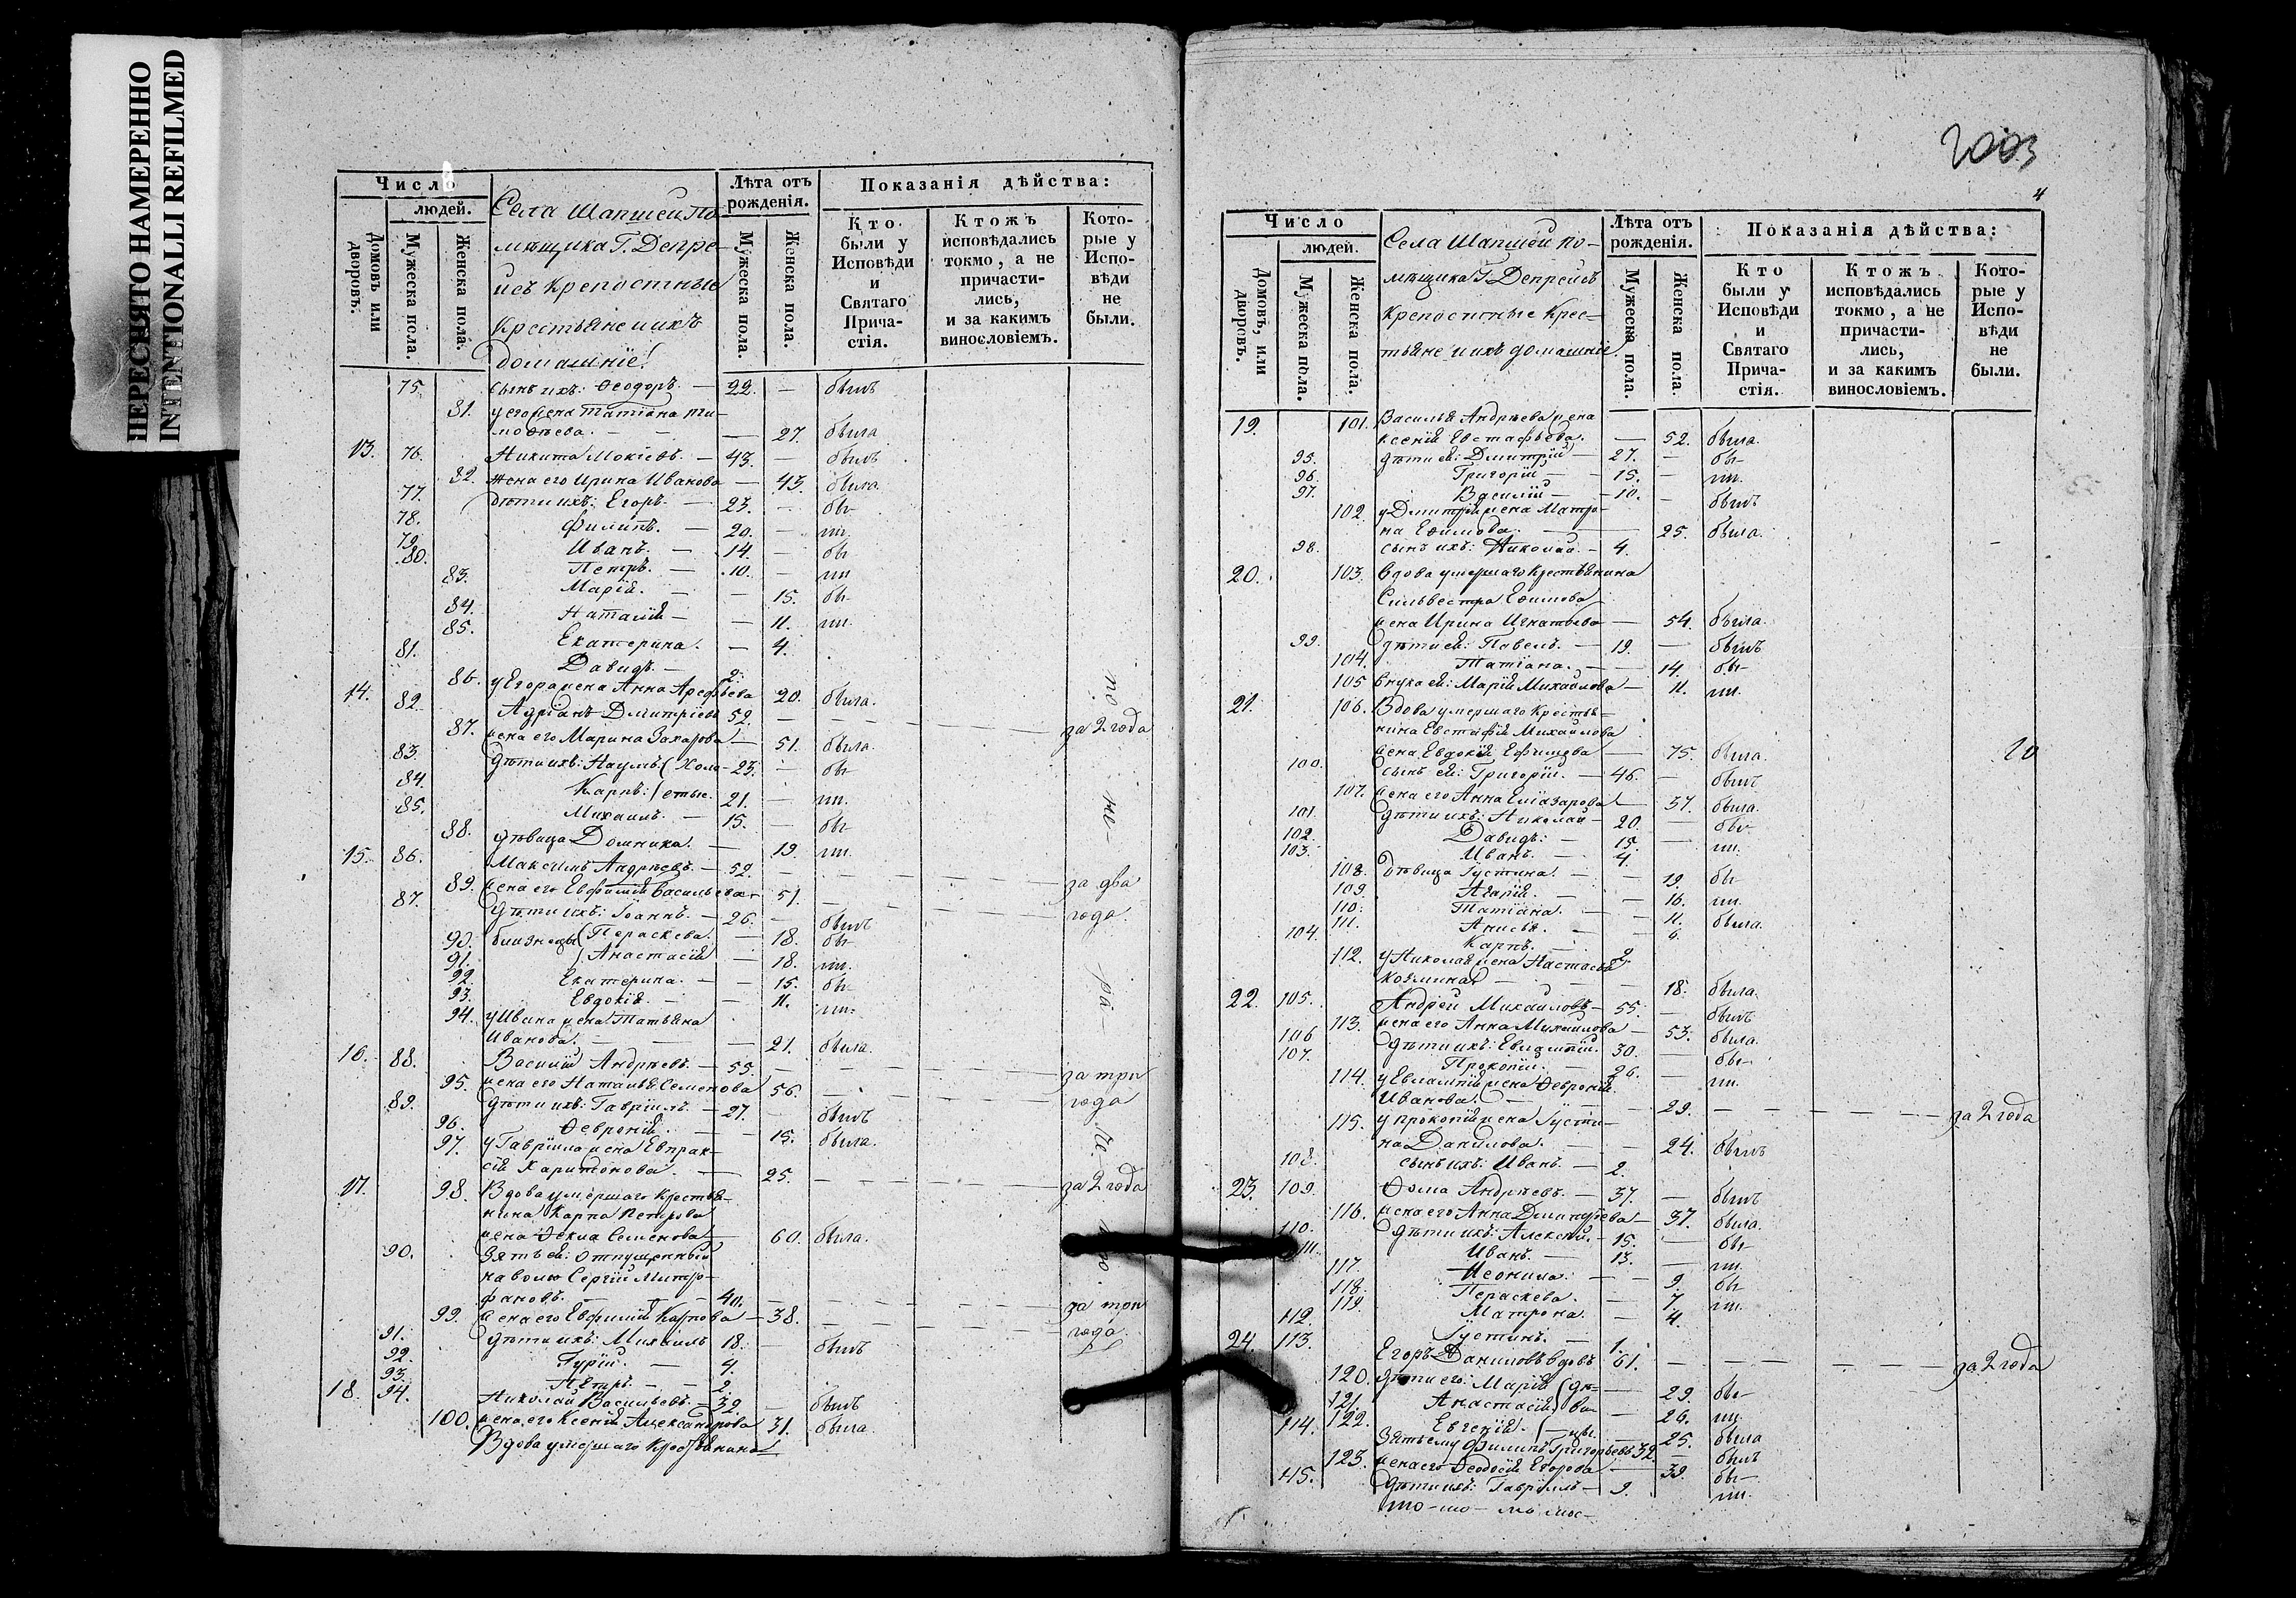 ПЕРЕСНЯТО НАМЕРЕННО
INTENTIONALLI REFILMED
Число
людей.
Домовъ или дворовъ.
Мужеска пола.
Женска пола.
Села Шапшеи по-
мѣщика Г. Депре-
исъ крепостные
крестьяне и ихъ
домашніе!
Лѣта отъ рожденія.
Мужеска пола.
Женска пола.
Показанія дѣйства:
Кто были у Исповѣди и Святаго Причастія.
Ктожъ исповѣдались токмо, а не причастились, и за какимъ винословіемъ.
Которые у Исповѣди не были.
75. сынъ ихъ: Ѳеодоръ. — 22. — былъ
81. у его жена Татіана Ти-
моѳѣева. — — — 27. была
13. 76. Никита Мокіевъ. — 43. — былъ
82. жена его Ирина Иванова — 43. была.
77. дѣти ихъ: Егоръ. — 23. — бы-
78. Филипъ. — 20. — ли.
79. Иванъ. — 14. — бы-
80. Петръ. — 10. — ли
83. Марія. — — 15. бы-
84. Наталія — — 11. ли.
85. Екатерина. — 4.
81. Давидъ. — 2.
86. у Егора жена Анна Арефьева 20. была.
14. 82. Адріанъ Дмитріевъ 52. — — — — за 2 года
87. жена его Марина Захарова — 51. была.
83. дѣти ихъ: Наумъ (Холо- 23. — бы-
84. Карпъ: (стые. 21. — ли.
85. Михаилъ. — 15. — бы-
88. дѣвица Домника. — 19. ли.
15. 86. Максимъ Андрѣевъ. — 52. — — — — за два
89. жена его Евфимія Васильева — 51. — — — — года.
87. дѣти ихъ: Іоаннъ. — 26. — былъ
90. близнецы (Параскева. — 18. бы-
91. (Анастасія — 18. ли.
92. Екатерина. — — 15. бы-
93. Евдокія. — — 11. ли.
94. у Ивана жена Татьяна
Иванова. — — — 21. была.
16. 88. Василій Андрѣевъ. — 55. — — — — за три
95. жена его Наталья Семенова 56. — — — — года
89. дѣти ихъ: Гавріилъ. — 27. — былъ
96. Ѳевронія. — — 15. была.
97. у Гавріила жена Евпрак-
сія Харитонова. — 25. — — — — за 2 года
17. 98. Вдова умершаго крестья-
нина Карпа Петрова
жена Ѳекла Семенова — 60. была.
90. Зять ея: отпущенный
на волю Сергій Митро-
фановъ. — — 40. — — — — за три
99. жена его Евфимія Карпова — 38. — — — — года.
91. дѣти ихъ: Михаилъ 18. — былъ
92. Гурій. — 4.
93. Петръ. — — 2.
18. 94. Николай Васильевъ. — 32. — былъ
100. жена его Ксенія Александрова 31. была.
Вдова умершаго крестьянина
2003
4
Число
людей.
Домовъ, или дворовъ.
Мужеска пола.
Женска пола.
Села Шапшеи по-
мѣщика Г. Депреисъ
крепостные крес-
тьяне и ихъ домашніе.
Лѣта отъ рожденія.
Мужеска пола.
Женска пола.
Показанія дѣйства:
Кто были у Исповѣди и Святаго Причастія.
Ктожъ исповѣдались токмо, а не причастились, и за какимъ винословіемъ.
Которые у Исповѣди не были.
19. 101. Василья Андрѣева жена
Ксенія Евстафьева. — 52. была.
95. дѣти ея: Дмитрій — 27. — бы-
96. Григорій — — 15. — ли.
97. Василій — — 10. — былъ
102. у Дмитрія жена Матро-
на Ефимова. — — 25. была.
98. сынъ ихъ: Николай. — 4.
20. 103. Вдова умершаго крестьянина
Сильвестра Ефимова
жена Ирина Игнатьева — 54. была.
99. дѣти ея: Павелъ. — 19. — былъ
104. Татіана. — — 14. бы-
105 внука ея: Марія Михайлова — 11. ли.
21. 106. Вдова умершаго крестья-
нина Евстафія Михайлова
жена Евдокія Ефимова — 75. была.
20
100. сынъ ея: Григорій. — 46. — былъ
107. жена его Анна Елизарова — 37. была.
101. дѣти ихъ: Николай — 20. — бы-
102. Давидъ: — 15. — ли.
103. Иванъ. — 4.
108. дѣвица Іустина. — — 19. бы-
109. Марія. — — 16. ли.
110. Татіана. — — 11. была.
111. Анисья. — — 6.
104. Карпъ. — 2.
112. у Николая жена Настасья
Козмина — — — 18. была.
22. 105. Андрей Михайловъ — 55. — былъ
113. жена его Анна Михайлова — 53. была.
106 дѣти ихъ: Евлампій. 30. — бы-
107. Прокопій. — 26. — ли.
114. у Евлампія жена Ѳевронія
Иванова. — — 29. — — — — за 2 года
115. у Прокопія жена Іусти-
на Данилова. — — 24. былъ
108. сынъ ихъ: Иванъ. — 2.
23. 109. Ѳома Андрѣевъ. — 37. — былъ
116. жена его Анна Дмитріева — 37. была.
110. дѣти ихъ: Алексѣй. — 15. — бы-
111. Иванъ. — 13. — ли.
117. Неонила. — — 9. бы-
118. Параскева. — 7. ли.
119. Матрона. — 4.
112. Іустинъ. — 1.
24. 113. Егоръ Даниловъ вдовъ 61. — — — — за 2 года
120. дѣти его: Марія (дѣ- — 29. бы-
121. Анастасія (ви- — 26. ли.
122. Евгенія. (цы. — 25. была
114. Зять ему Филипъ Григорьевъ 32. — былъ
123. жена его Ѳеодосія Егорова — 39. бы-
115. дѣти ихъ: Гавріилъ — 9. ли.